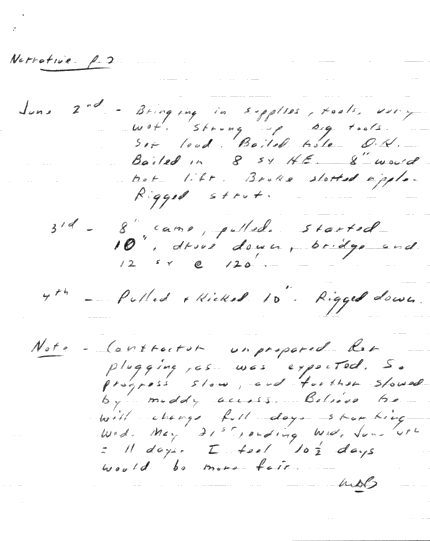 Narrative p. 2
June 2nd - Bringing in supplies, tools, very
wet. Strung up big tools.
Set load. Bailed hole O.K.
Bailed in 8 sx H.E. 8" would
not lift. Broke slotted nipple.
Rigged strut.
3rd - 8" came, pulled. Started
10", drove down, bridge and
12 sx @ 120'.
4th - Pulled + Kicked 10". Rigged down.
Note - Contractor unprepared for
plugging, as was expected. So
progress slow, and further slowed
by muddy access. Believe he
will charge full days starting
Wed. May 21st, ending Wed, June 4th
= 11 days. I feel 10 1/2 days
would be more fair.